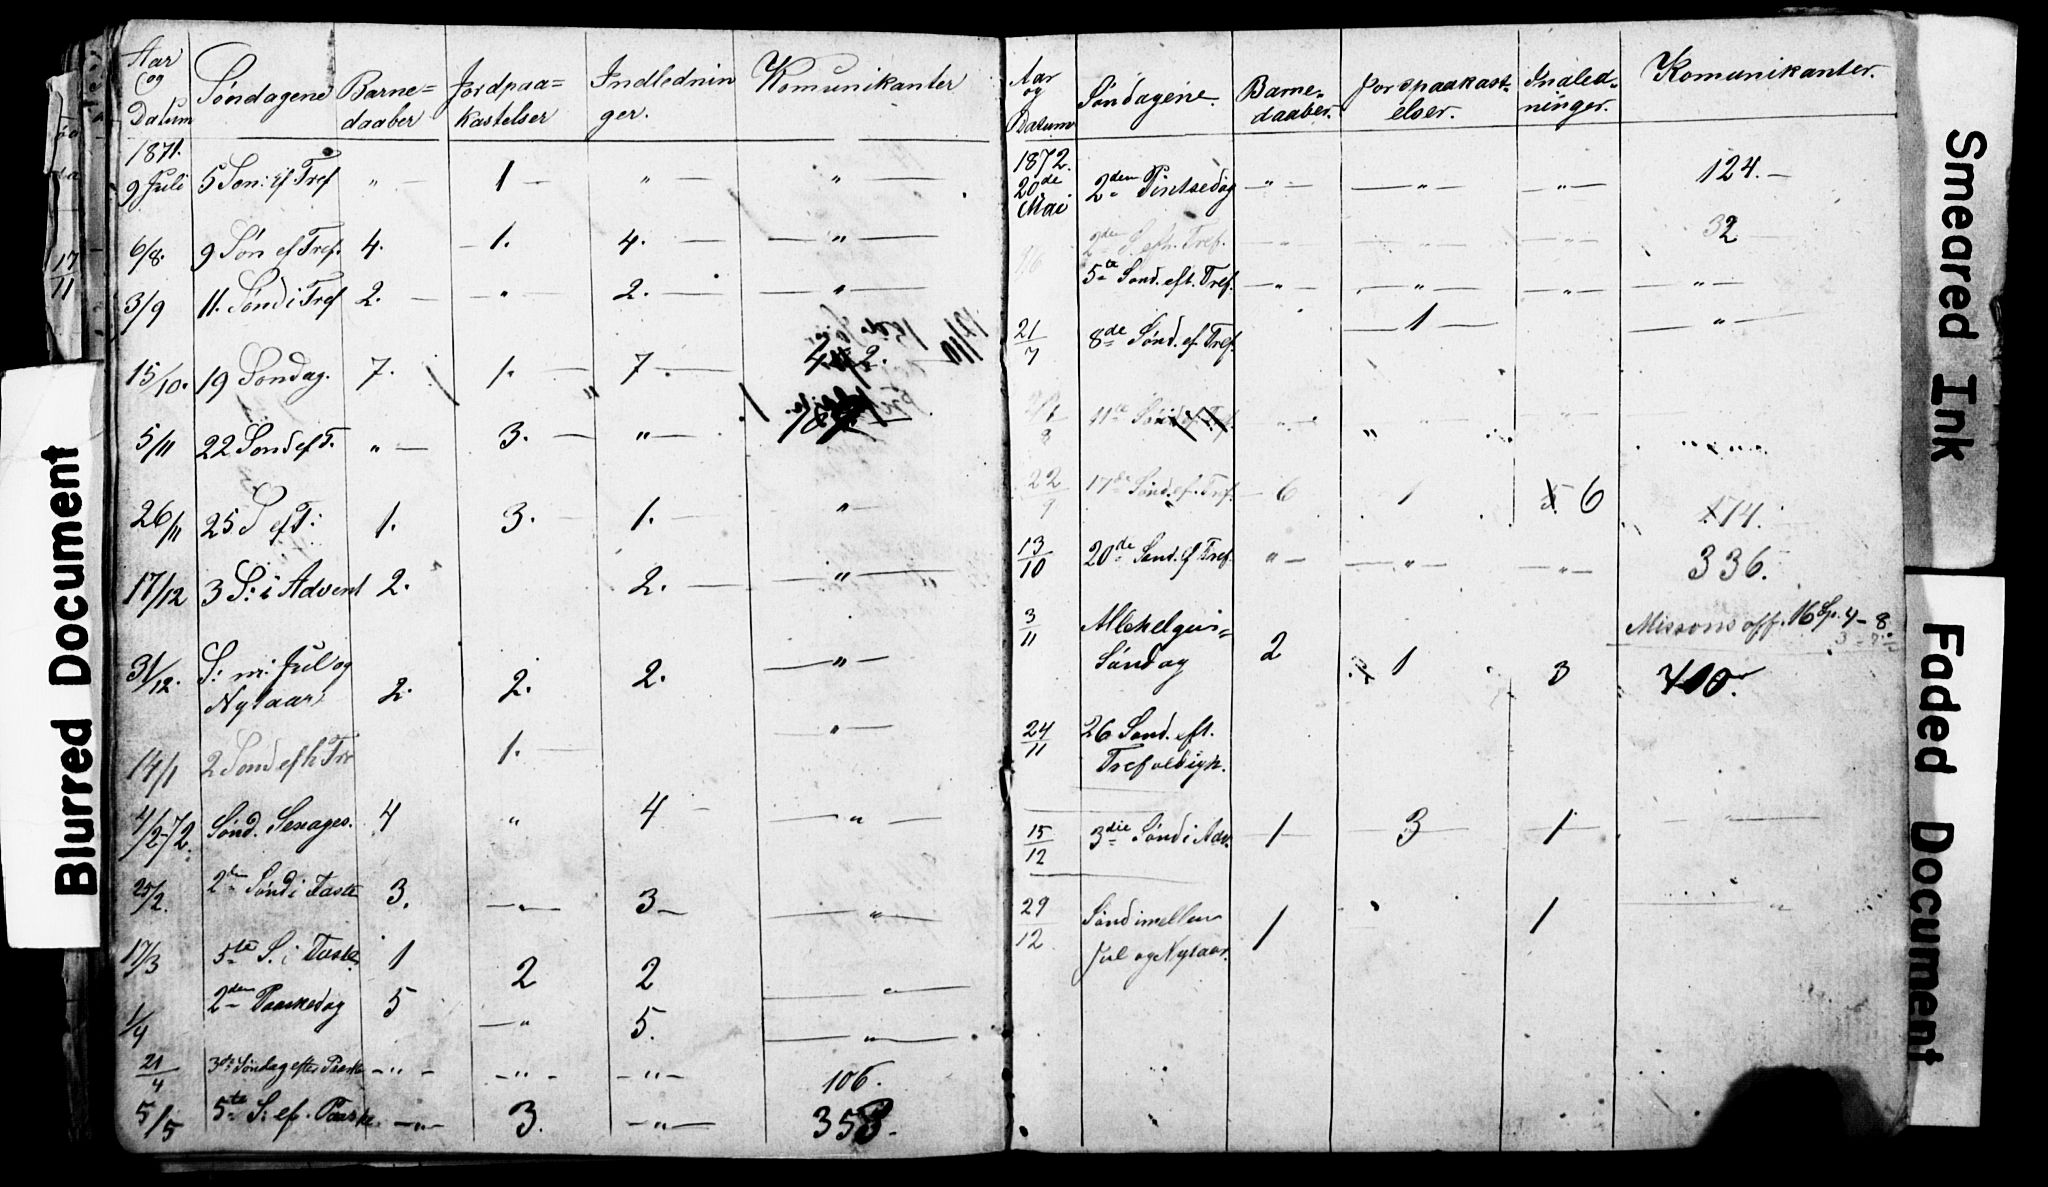 Aar og Datum Søndagene Barne=daaber Jordpaa=kastelser Indledninger. Komunikanter
1871.
9 Juli 5 Søn: ef Tref „ — 1 — „ — „ —
6/8. 9 Søn ef Tref. 4. — 1. 4. — — „ —
3/9 11. Sønd i Tref 2. — - „ - 2. — — „ —
15/10. 19 Søndag. 7. 1. — 7. —
5/11 22 Sønd ef T. „ — 3. — „ —
26/11 25 S ef T: 1. 3. — 1. — „ —
17/12 3 S: i Advent 2. 2. — — „ —
31/12. S: m: Jul og
Nytaar 2. 2. 2. — „ —
14/1 2 Sønd efth Tr 1. — — „ —
4/2-72. Sønd. Sexages. 4 „ 4 — — „ —
25/2. 2den Sønd i Faste 3. — „ — 3 — — „ —
17/3 5te S. i Faste 1 2 2 — „ —
1/4 2den Paaskedag 5 — „ 5. — „ —
21/4 3die Søndag efter Paaske - „ - - „ - - „ - 106.
5/5 5te S: ef. Paaske - „ - 3. - „ - 353.
Aar og Datum Søndagene. Barne=daaber. Jordpaakast=elser. Indled=ninger. Komunikanter.
1872.
20de Mai 2den Pintsedag - „ - — „ — - „ - 124. —
2den S. efth. Tref. - „ - — „ — - „ - 32
5te Sønd. eft. Tref. - „ - — „ — - „ - — „ —
21/7 8de Sønd. ef. Tref. — 1 — — „ —
11te Sønd ef Tref.
22/9 17de Sønd. ef. Tref. — 6 1 6 174.
13/10 20de Sønd. ef Tref. „ — — „ — — „ — 336.
Missons off. 16 Sp. 4 - 8
3/11 Allehelgens=
Søndag 2 1 3 400.
24/11 26 Sønd. eft.
Trefoldigh.
15/12 3die Sønd i Adv. — 1 — — 3 — — 1 — — „ —
29/12 Sønd imellem
Jul og Nytaar. 1 1 — „
17/11
Blurred Document
Smeared Ink
Faded Document